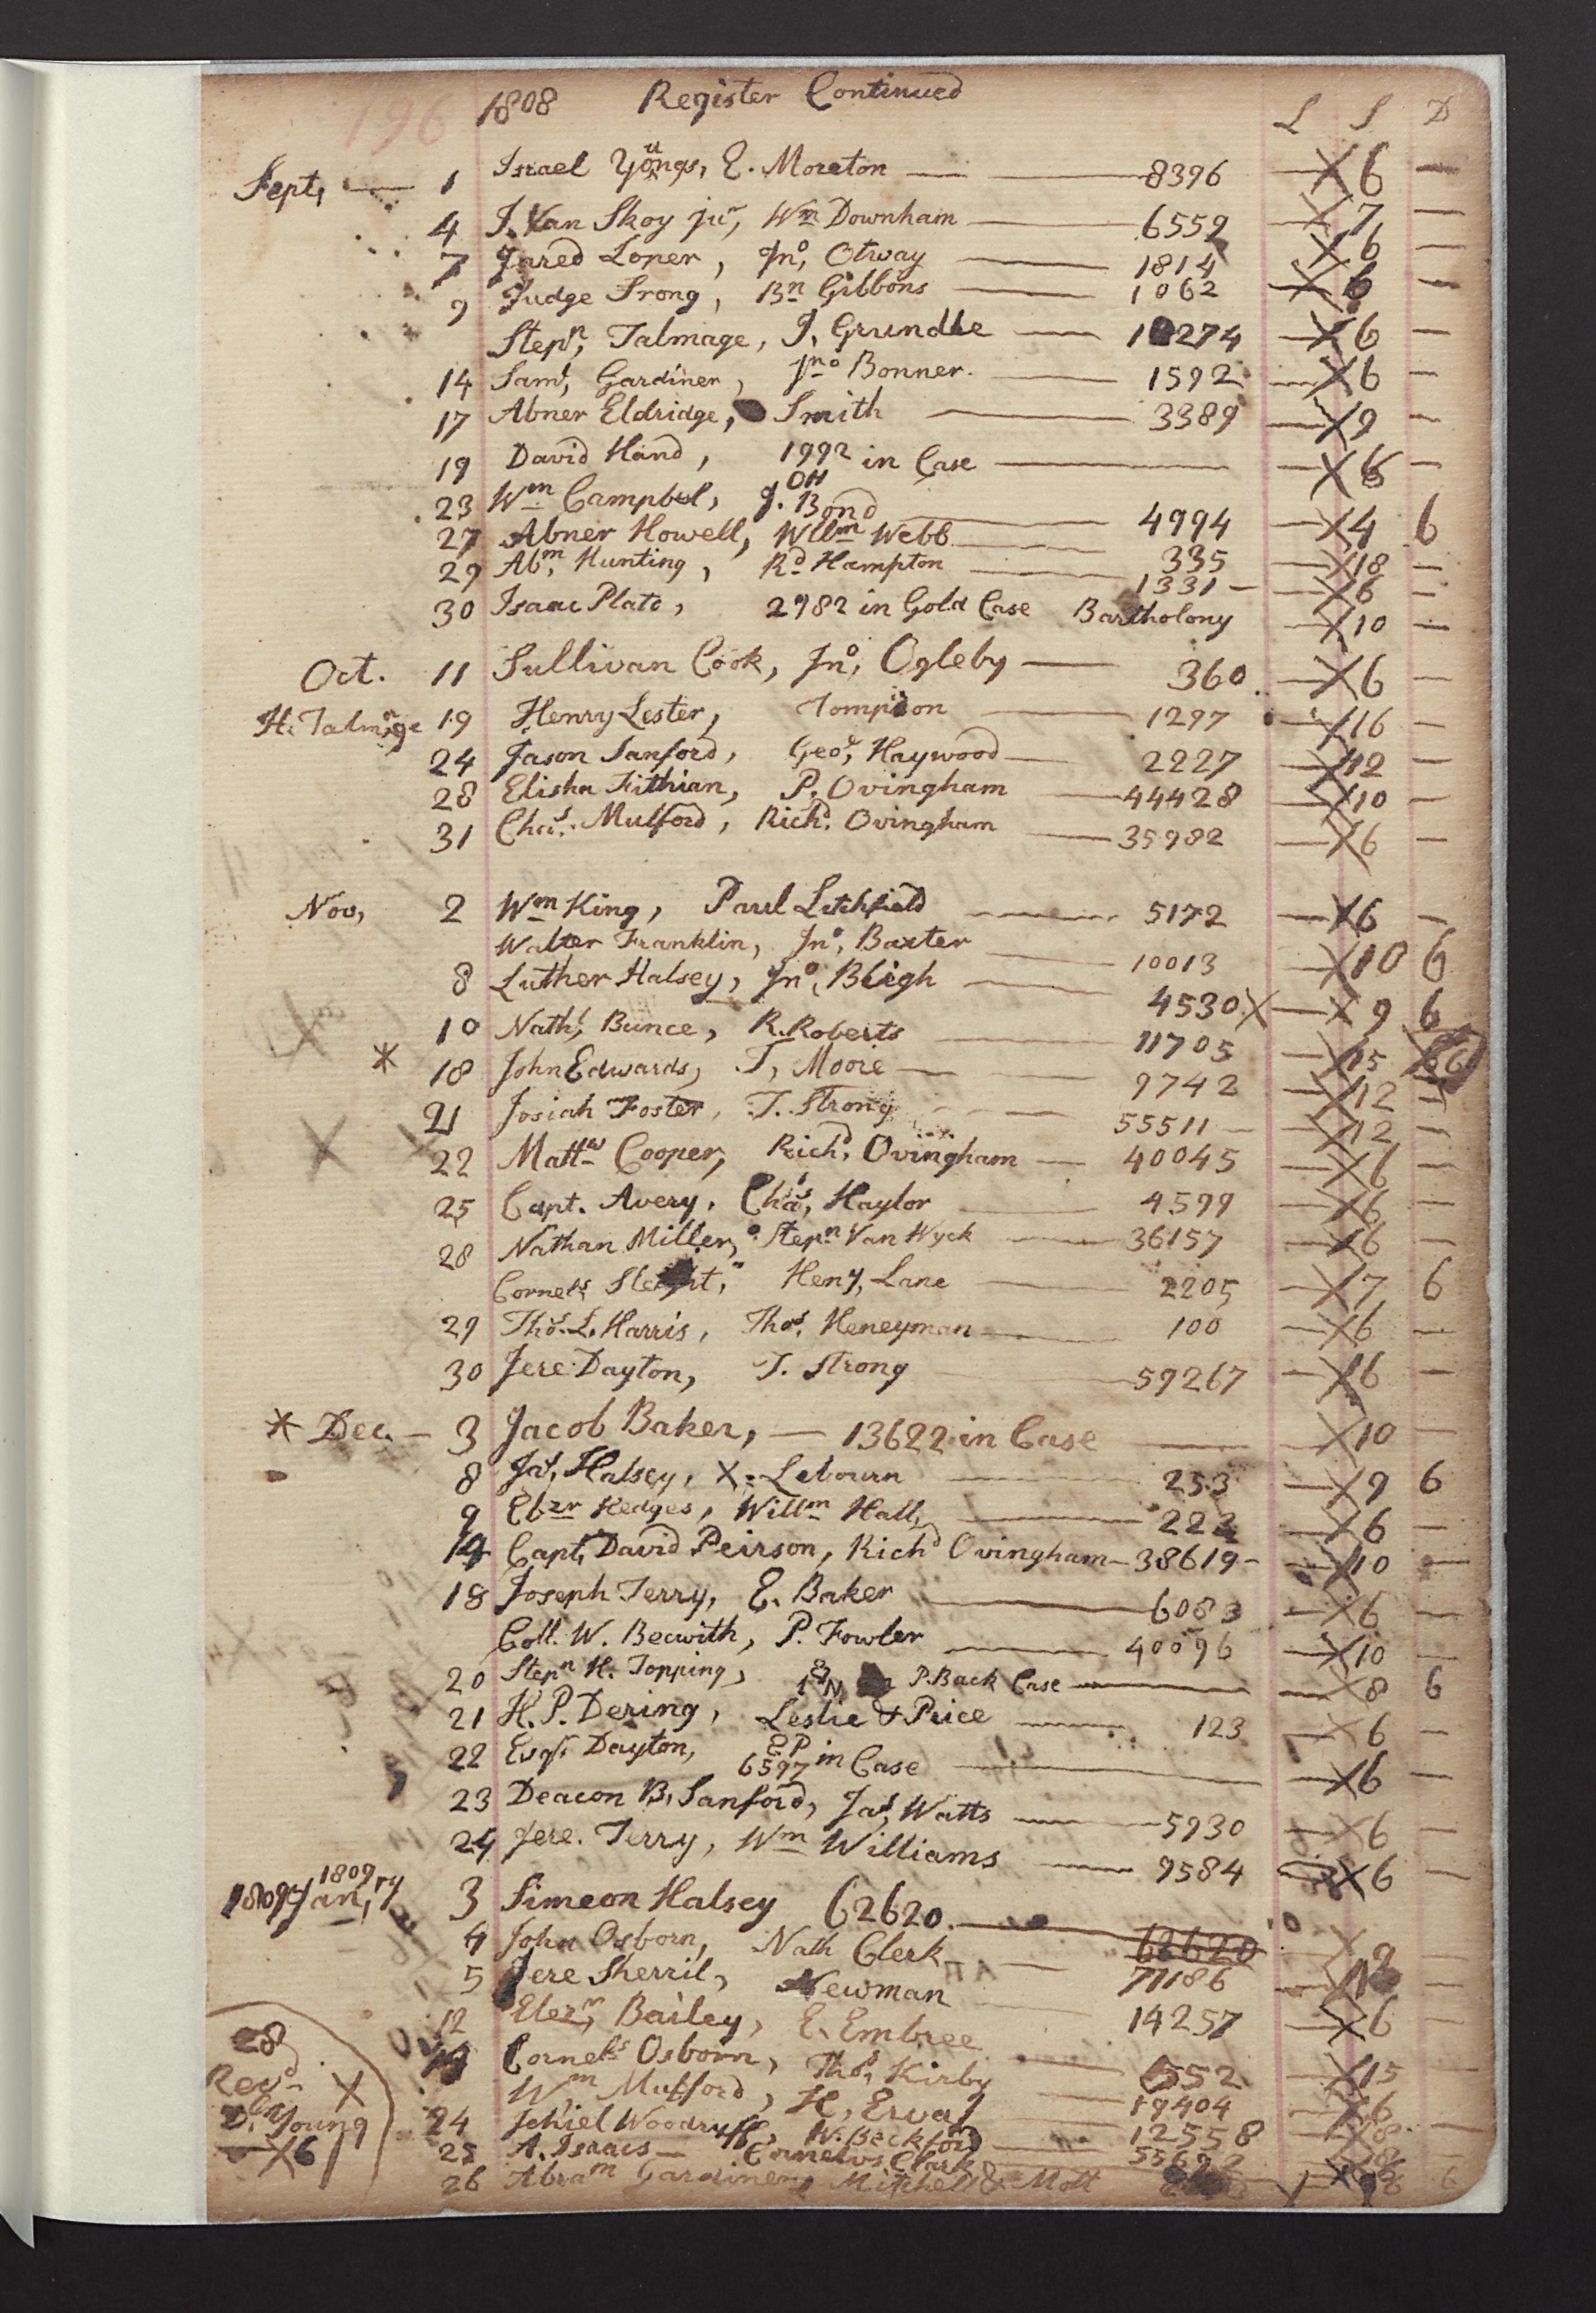 196 1808 Register Continued L S D
Sept, — 1 Israel Youngs, E. Moreton — 8396 — X 6 —
4 J. Van Skoy jur, Wm Downham — 6559 — X 7 —
7 Jared Loper, Jno, Otway — 1814 X 6 —
9 Judge Srong, Bn Gibbons — 1062 — X 6 —
Stepn, Talmage, J, Grundle — 10274 — X 6 —
14 Saml, Gardiner, Jno Bonner. — 1592 — X 6 —
17 Abner Eldridge, Smith — 3389 — X 9 —
19 David Hand, 1992 in Case — X 6 —
OH
23 Wm Campbel, J. Bond — 4994 — X 4 6
27 Abner Howell, Willm Webb — 335 — X 18 —
29 Abm, Hunting, Rd Hampton — 1331 — X 6 —
30 Isaac Plato, 2982 in Gold Case Bartholony — X 10 —
Oct. 11 Sullivan Cook, Jno, Ogleby — 360 — X 6 —
H. Talmage 19 Henry Lester, Tompion — 1297 — X 16 —
24 Jason Sanford, Geo, Haywood — 2227 — X 12 —
28 Elisha Fithian, P. Ovingham — 44428 — X 10 —
31 Chas. Mulford, Richd. Ovingham — 35982 — X 6 —
Nov, 2 Wm King, Paul Litchfield — 5172 — X 6 —
Walter Franklin, Jno, Baxter — 10013 — X 10 6
8 Luther Halsey, Jno, Bligh — 4530 X — X 9 6
10 Nathl, Bunce, R. Roberts — 11705 — X 15 6
* 18 John Edwards, T, Moore — 9742 — X 12 —
21 Josiah Foster, T. Strong — 55511 — X 12 —
22 Mattw Cooper, Richd, Ovingham — 40045 — X 6 —
25 Capt. Avery, Chas, Haylor — 4599 — X 6 —
28 Nathan Miller, Stepn Van Wyck — 36157 — X 6 —
Cornels Sleight, Heny, Lane — 2205 — X 7 6
29 Thos. L. Harris, Thos, Heneyman — 100 — X 6 —
30 Jere Dayton, T. Strong — 59267 — X 6 —
* Dec. — 3 Jacob Baker, — 13622 in Case — X 10 —
8 Jas, Halsey, X. Lebourn — 253 — X 9 6
9 Ebzr Hedges, Willm Hall, — 222 — X 6 —
14 Capt, David Peirson, Richd Ovingham — 38619 — X 10 —
18 Joseph Terry, E. Baker — 6083 — X 6 —
Coll. W. Becwith, P. Fowler — 40096 — X 10 —
20 Stepn H. Topping, P. Back Case — X 8 6
21 H. P. Dering, Leslie & Price — 123 — X 6 —
EP
22 Esqr. Dayton, 6597 in Case — X 6 —
23 Deacon B, Sanford, Jas, Watts — 5930 — X 6 —
24 Jere. Terry, Wm Williams — 9584 — X 6 —
1809 Jan,ry 1809 3 Simeon Halsey 62620. — 62620 X
4 John Osborn, Nath Clerk — 71186
5 Jere Sherril, Newman — 14257 — X 6 —
12 Elezr, Bailey, E. Embree — 6552 — X 15 —
Cornels Osborn, Thos, Kirby — 19404 — X 6
Wm Mulford, H, — 12558 — X 8 —
24 Jehiel Woodruff, W. Beckford
25 A. Isaacs — Cornelus Clark
26 Abram Gardiner, Mitchell & Mott 6
28
Revd. X
D. Young
— X 6